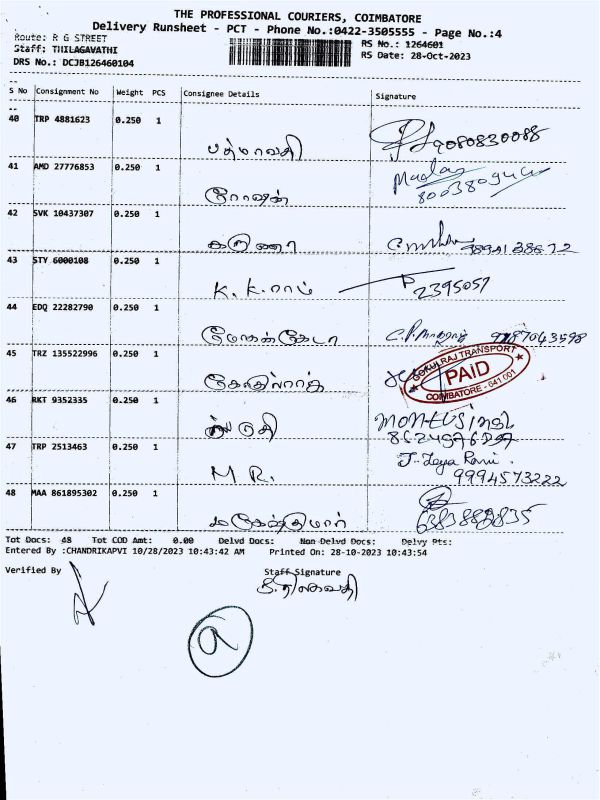 THE PROFESSIONAL COURIERS, COIMBATORE
Delivery Runsheet - PCT - Phone No.:0422-3505555 - Page No.:4
Route: R G STREET
Staff: THILAGAVATHI
DRS No.: DCJB126460104
RS No.: 1264601
RS Date: 28-Oct-2023
S No Consignment No Weight PCS Consignee Details Signature
40 TRP 4881623 0.250 1
பத்மாவதி 9080830088
41 AMD 27776853 0.250 1
ரோஷன்
42 SVK 10437307 0.250 1
கருணா
43 STY 6000108 0.250 1
K. K. ராம் 2395057
44 EDQ 22282790 0.250 1
9787043598
45 TRZ 135522996 0.250 1
GOKULRAJ TRANSPORT
PAID
COIMBATORE - 641 001
46 RKT 9352335 0.250 1
47 TRP 2513463 0.250 1
M R. J. Jaya Rani.
9994573222
48 MAA 861895302 0.250 1
மகேந்திரகுமார்
Tot Docs: 48 Tot COD Amt: 0.00 Delvd Docs: Non Delvd Docs: Delvy Pts:
Entered By :CHANDRIKAPVI 10/28/2023 10:43:42 AM Printed On: 28-10-2023 10:43:54
Verified By Staff Signature
9